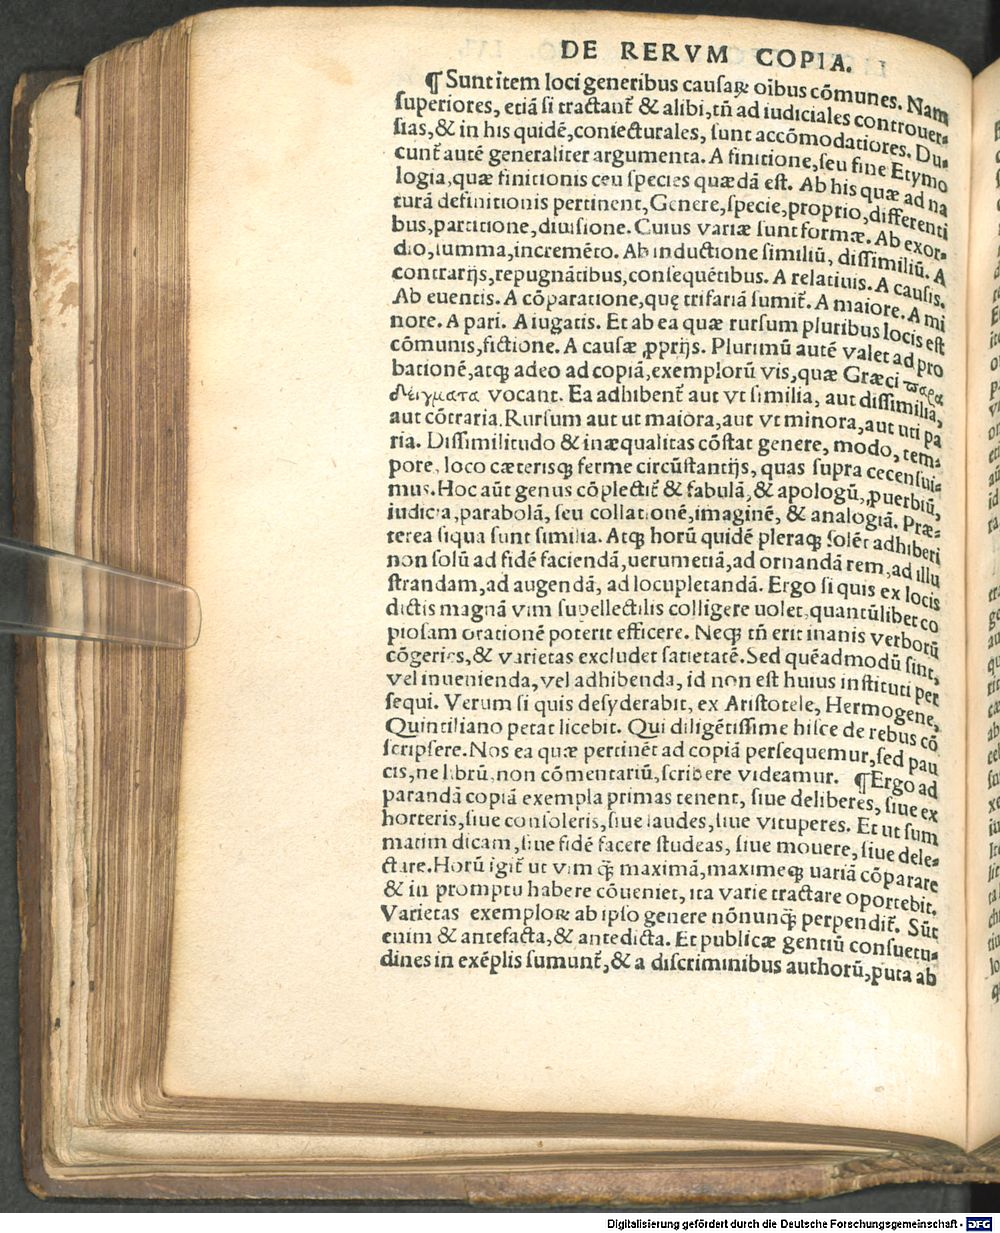 DE RERVM COPIA.
¶ Sunt item loci generibus causaꝝ oībus cōmunes. Nam
superiores, etiā si tractant᷑ & alibi, tn̄ ad iudiciales controuer-
sias, & in his quidē, coniecturales, sunt accōmodatiores. Du-
cunt᷑ autē generaliter argumenta. A finitione, seu fine Etymo
logia, quæ finitionis ceu species quædā est. Ab his quæ ad na
turā definitionis pertinent, Genere, specie, proprio, differenti
bus, partitione, diuisione. Cuius variæ sunt formæ. Ab exor-
dio, summa, incremēto. Ab inductione similiū, dissimiliū. A
contrarijs, repugnātibus, consequētibus. A relatiuis. A causis.
Ab euentis. A cōparatione, quę trifariā sumit᷑. A maiore. A mi
nore. A pari. A iugatis. Et ab ea quæ rursum pluribus locis est
cōmunis, fictione. A causæ ꝓprijs. Plurimū autē valet ad pro
bationē, atqꝫ adeo ad copiā, exemplorū vis, quæ Græci παρα
δείγματα vocant. Ea adhibent᷑ aut vt similia, aut dissimilia,
aut cōtraria. Rursum aut ut maiora, aut vt minora, aut uti pa
ria. Dissimilitudo & inæqualitas cōstat genere, modo, tem-
pore, loco cæterisqꝫ ferme circūstantijs, quas supra recensui-
mus. Hoc aūt genus cōplectit᷑ & fabulā, & apologū, ꝓuerbiū,
iudicia, parabolā, seu collationē, imaginē, & analogiā. Præ-
terea siqua sunt similia. Atqꝫ horū quidē pleraqꝫ solēt adhiberi
non solū ad fidē faciendā, uerumetiā, ad ornandā rem, ad illu
strandam, ad augendā, ad locupletandā. Ergo si quis ex locis
dictis magnā vim supellectilis colligere uolet, quantūlibet co
piosam orationē poterit efficere. Neqꝫ tn̄ erit inanis verborū
cōgeries, & varietas excludet satietatē. Sed quēadmodū sint,
vel inuenienda, vel adhibenda, id non est huius instituti per
sequi. Verum si quis desyderabit, ex Aristotele, Hermogene,
Quintiliano petat licebit. Qui diligētissime hisce de rebus cō
scripsere. Nos ea quæ pertinēt ad copiā persequemur, sed pau
cis, ne librū, non cōmentariū, scribere videamur. ¶ Ergo ad
parandā copiā exempla primas tenent, siue deliberes, siue ex
horteris, siue consoleris, siue laudes, siue vituperes. Et ut sum
matim dicam, siue fidē facere studeas, siue mouere, siue dele-
ctare. Horū igit᷑ ut vim q̄ꝫ maximā, maximeqꝫ uariā cōparare
& in promptu habere cōueniet, ita varie tractare oportebit.
Varietas exemploꝝ ab ipso genere nōnunq̄ꝫ perpendit᷑. Sūt
enim & antefacta, & antedicta. Et publicæ gentiū consuetu-
dines in exēplis sumunt᷑, & a discriminibus authorū, puta ab
Digitalisierung gefördert durch die Deutsche Forschungsgemeinschaft - DFG